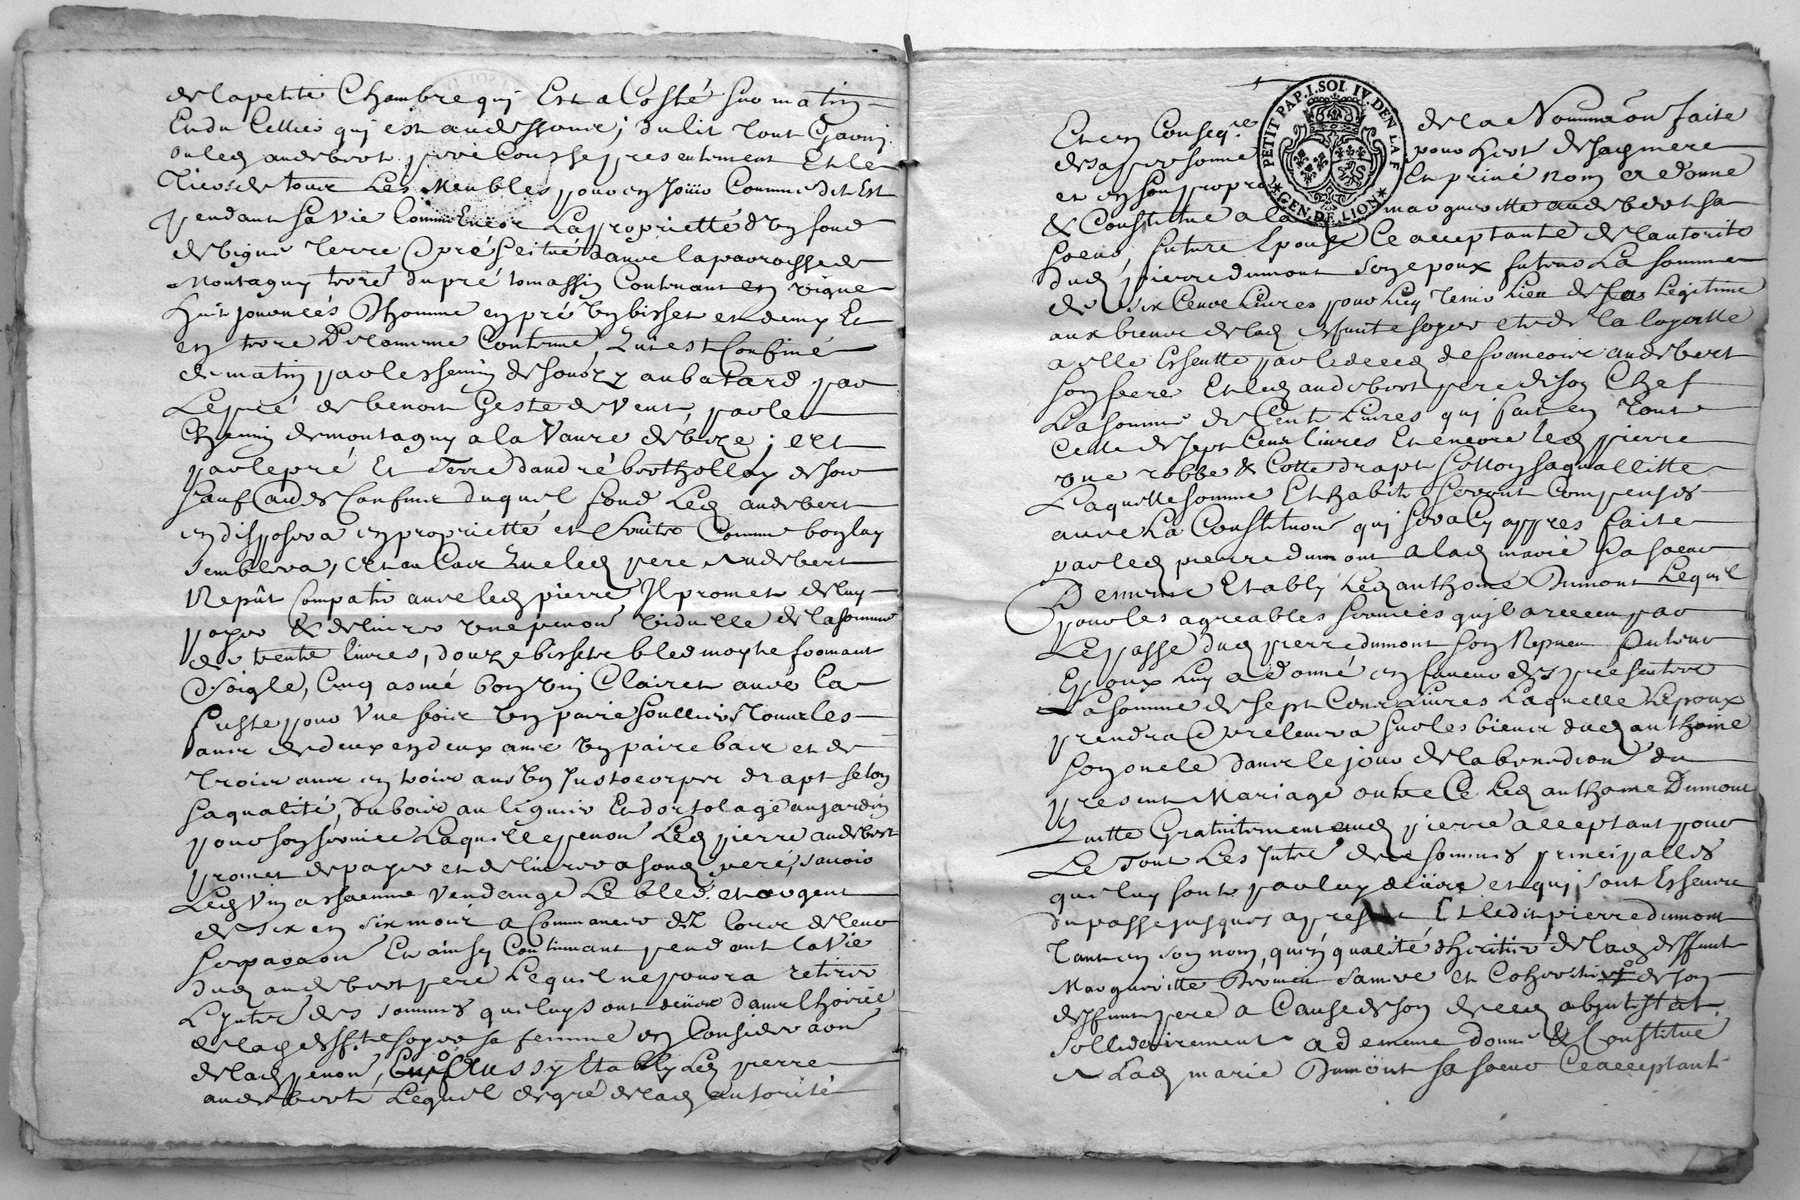 de lapetite Chambre quj Est a Costé sur matin
Et du Cellier quj est au dessous; du lit tout Garnj
ou led audebert pere Cousse presentement Et le
tiers de tous Les Meubles pour en Joüir Comme dit Est
pendant sa vie Comm'Encor La proprietté d'un fond
de vigne terre & pré scitué dans la parroisse de
Montagny terre du pré tomassin Contenant en vigne
huit journeés d'homme en pré un bisset et demy Et
en terre de la meme Contenue qui est Confiné
de matin par le chemin de au batard par
Le pré de benoit Geste de vent, par le
Chemin de montagny a la Vaure de ; et
par le pré Et Terre d'andré berthollay de soir
sauf Confins duquel fond Led audebert
en disposera en proprietté et Comme bon luy
semblera, Et au Cas que led pere Audebert
Ne pût Compatir avec led pierre Il promet de luy
payer & delivrer une penon viduelle de la somme
de trente livres, douze bissets bled moytié froment
& soigle, Cinq asnée bon vin Clairet avec la
fuste pour une fois un paire soulliers tous les
ans de deux en deux ans un paire bas et de
trois ans en trois ans un Justocorps drapt selon
sa qualité, du bois au lignier Et d'ortolage au jardin
pour son service Laquelle penon Led pierre audebert
promet de payer et delivrer a sond pere, savoir
Led vin a chacune vendange Le bled et argent
de six en six mois a Commancer dez lors de leur
separaon Et ainsy Continuant pendant la vie
dud audebert pere Lequel ne pourra retirer
L'jnterest des sommes quj luy sont deües dans l'hoirie
de lad deff.te soyer sa femme en Consideraon
de lad penon, Aussy Etably Led pierre
audebert Lequel de gré de lad autorité
Et en Conseq.ce de la Nominaon faite
de sa personne pour hert de sa mere
et en son propre Et privé nom a donné
& Constitué a lad margueritte audebert sa
soeur, future Epouse Ce acceptante de l'autorité
dud pierre dumont son epoux futur La somme
de six Cents Livres pour luy tenir Lieu de sa Legitime
aux biens de lad deffunte soyer et de la
a elle Escheutte par le deced de francois audebert
son frere Et led audebert pere de son Chef
La somme de Cent Livres quj fait en tout
Celle de sept Cents livres Et encore led pierre
une robbe & Cotte drapt selon sa quallitté
Laquelle somme Et habits seront Compensés
avec La Constitution quj sera Cy appres faite
par led pierre dumont a lad marie sa soeur
De meme Etably Led anthoine Dumont Lequel
pour les agreables services qu'jl a receu par
Le passé dud pierre dumont son Nepveu futur
Epoux luy a donné en faveur des presentes
La somme de sept Cents Livres Laquelle L'epoux
prendra & prelevera sur les biens dud anthoine
son oncle dans le jour de la benedion du
present Mariage outre Ce Led anthoine Dumont
quitte Gratuitement aud pierre acceptant pour
Le tout Les Interests de sommes principalles
quj luy sont par luy deües et quj sont Escheus
du passé jusques a present Et ledit pierre dumont
tant en son nom, qu'en qualité d'heritier de lad deffunte
Margueritte sa mere et Coheritier de son
deffunt pere a Cause de son deced abjntestat
Sollidairement a de meme donné & Constitué
a Lad marie Dumont sa soeur Ce acceptant
PETIT PAP. I. SOL IV. DEN LA F
* GEN. DE LION *